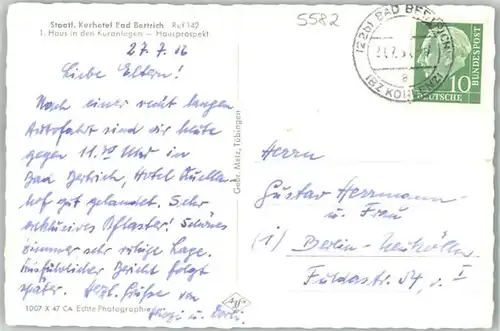 Staatl. Kurhotel Bad Bertrich Ruf 142
1. Haus in den Kuranlagen — Hausprospekt
5582
27.7.
Liebe Eltern!
Nach einer recht langen
Autofahrt sind wir heute
gegen 11.30 Uhr in
Bad Bertrich, Hotel Quellen
hof gut gelandet. Sehr
exklusives Pflaster! Schönes
Zimmer, sehr ruhige Lage.
Ausführlicher Bericht folgt
später. Herzl. Grüße von
u.
1007 X 47 CA Echte Photographie
Gebr. Metz, Tübingen
(22b) BAD BERTRICH
(BZ KOBLENZ)
a
10
DEUTSCHE
BUNDESPOST
Herrn
Gustav Herrmann
u. Frau
(1) Berlin-Neukölln
Fuldastr. 54, I